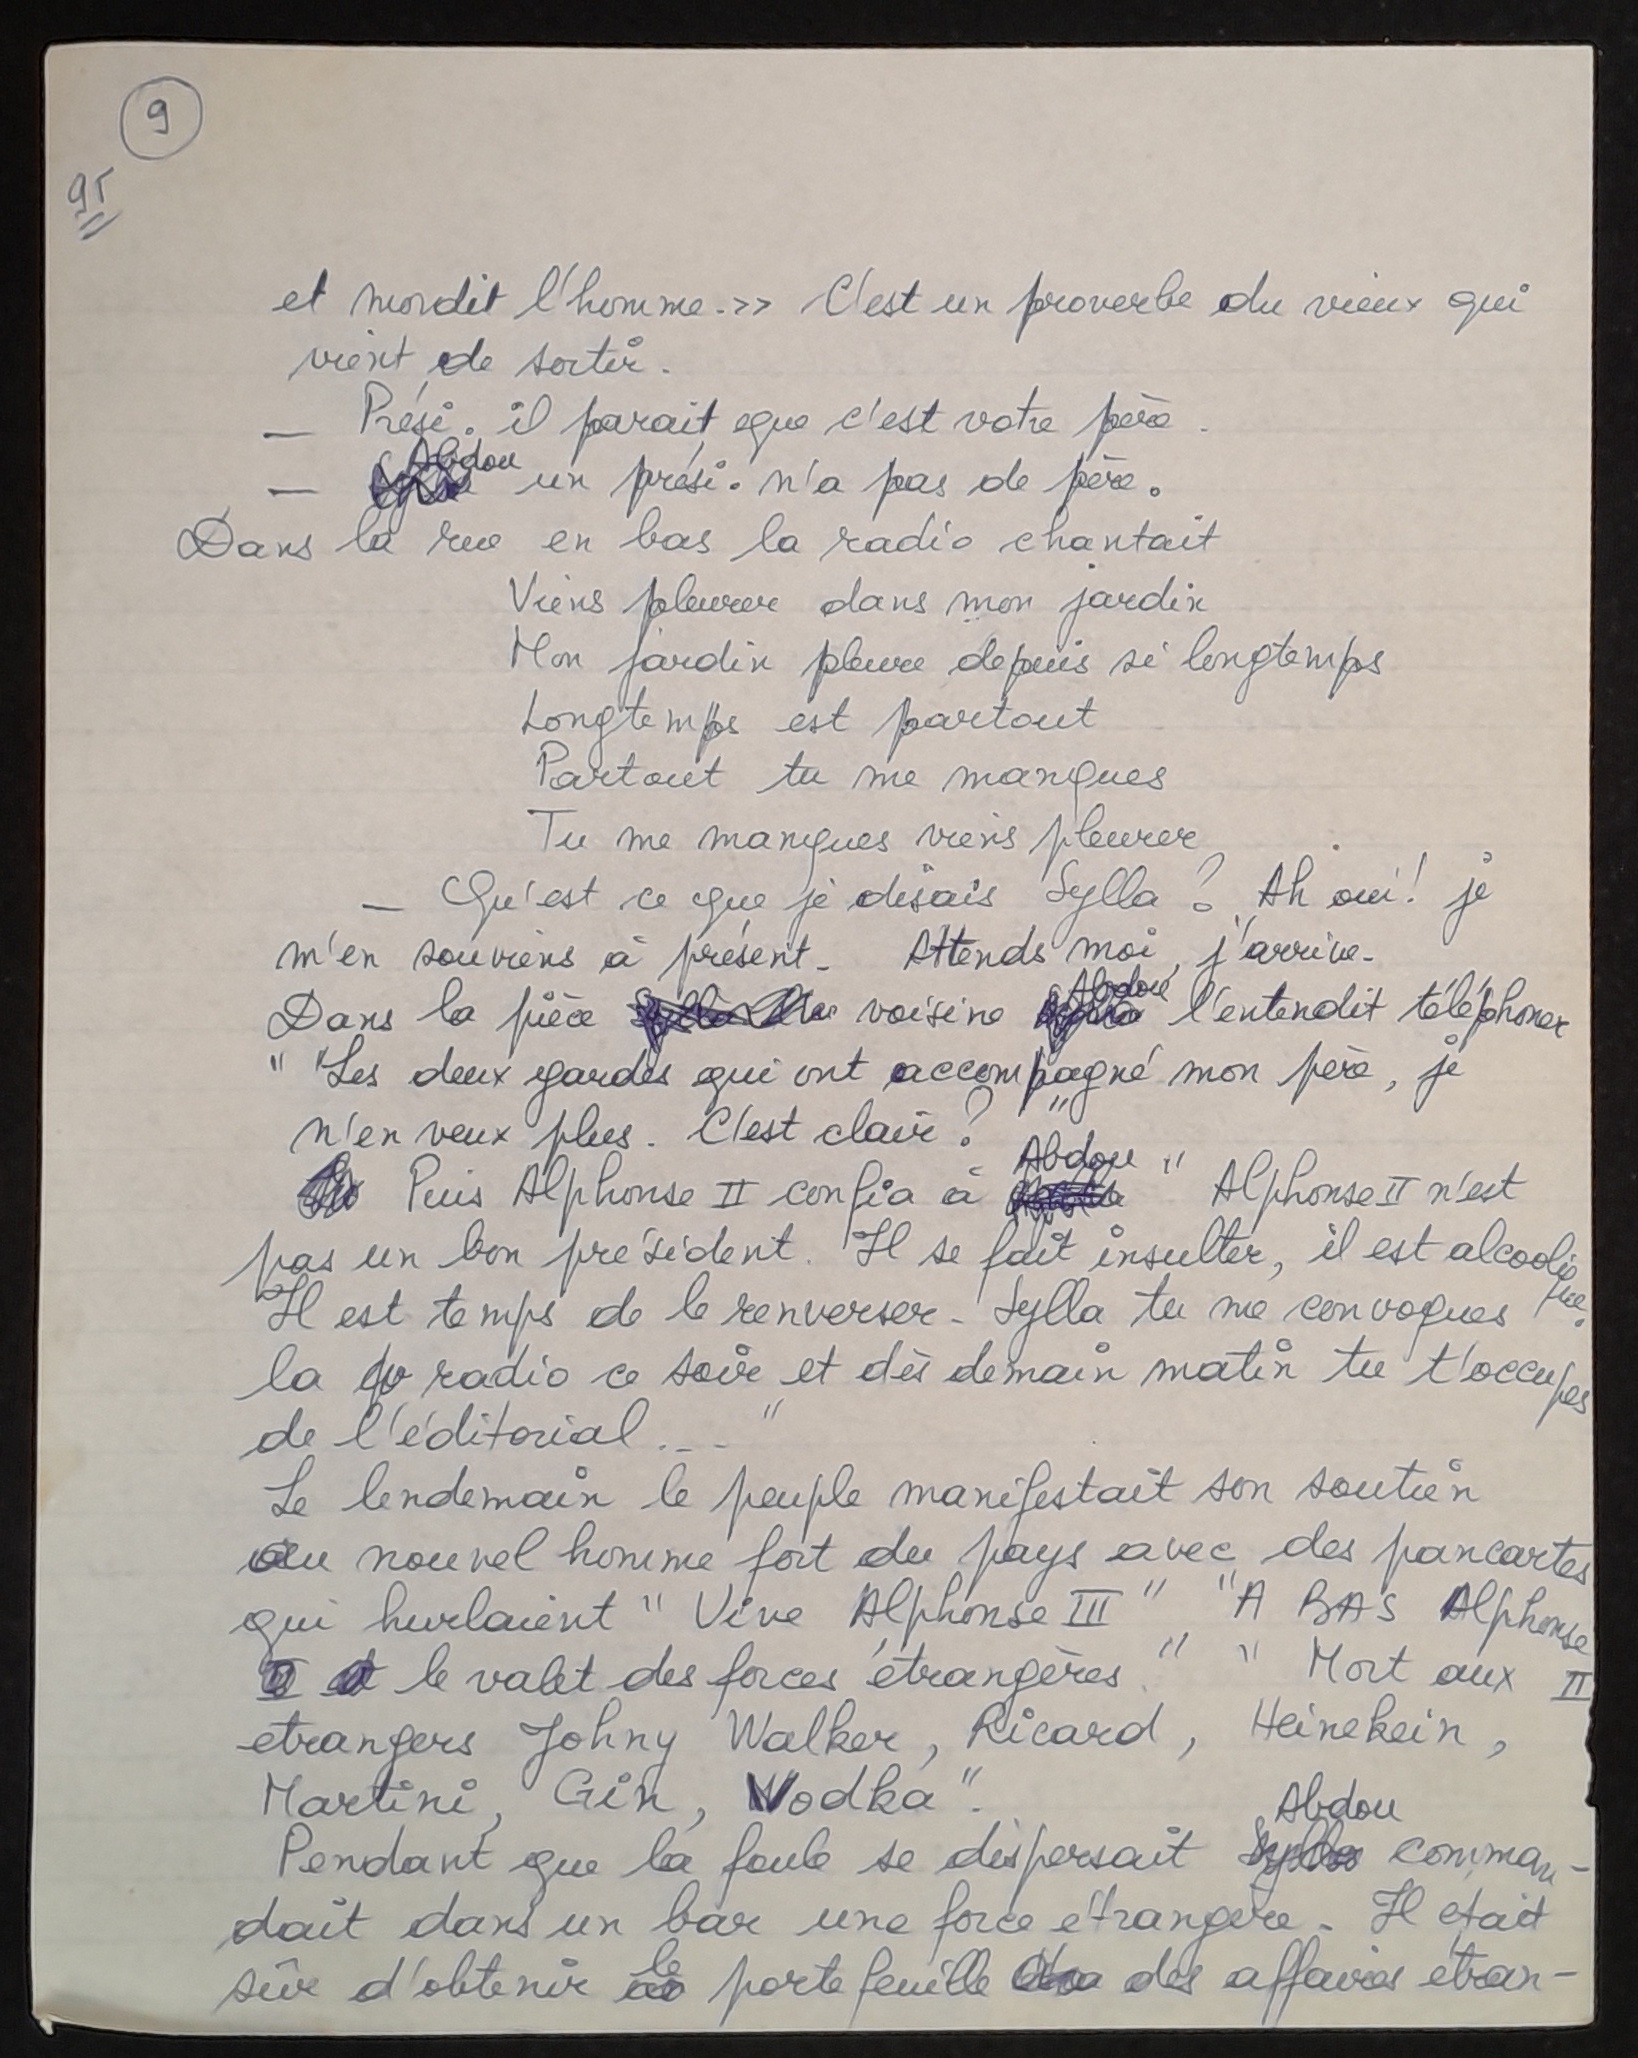 9
95
et mordit l'homme.>> C'est un proverbe du vieux qui
vient de sortir.
— Prési. il parait que c'est votre père.
— Abdou un prési. n'a pas de père.
Dans la rue en bas la radio chantait
Viens pleurer dans mon jardin
Mon jardin pleure depuis si longtemps
Longtemps est partout
Partout tu me manques
Tu me manques viens pleurer
— Qu'est ce que je disais Sylla ? Ah oui ! je
m'en souviens à présent. Attends moi, j'arrive.
Dans la pièce voisine Abdou l'entendit téléphoner
" "Les deux gardes qui ont accompagné mon père, je
n'en veux plus. C'est clair ? "
Puis Alphonse II confia à Abdou " Alphonse II n'est
pas un bon président. Il se fait insulter, il est alcoolique.
Il est temps de le renverser. Sylla tu me convoques
la radio ce soir et dès demain matin tu t'occupes
de l'éditorial... "
Le lendemain le peuple manifestait son soutien
au nouvel homme fort du pays avec des pancartes
qui hurlaient " Vive Alphonse III " "A BAS Alphonse II
le valet des forces étrangères." " Mort aux
etrangers Johny Walker, Ricard, Heinekein,
Martini, Gin, Vodka".
Pendant que la foule se dispersait Abdou comman-
dait dans un bar une force étrangère. Il était
sûr d'obtenir le porte feuille des affaires étran-